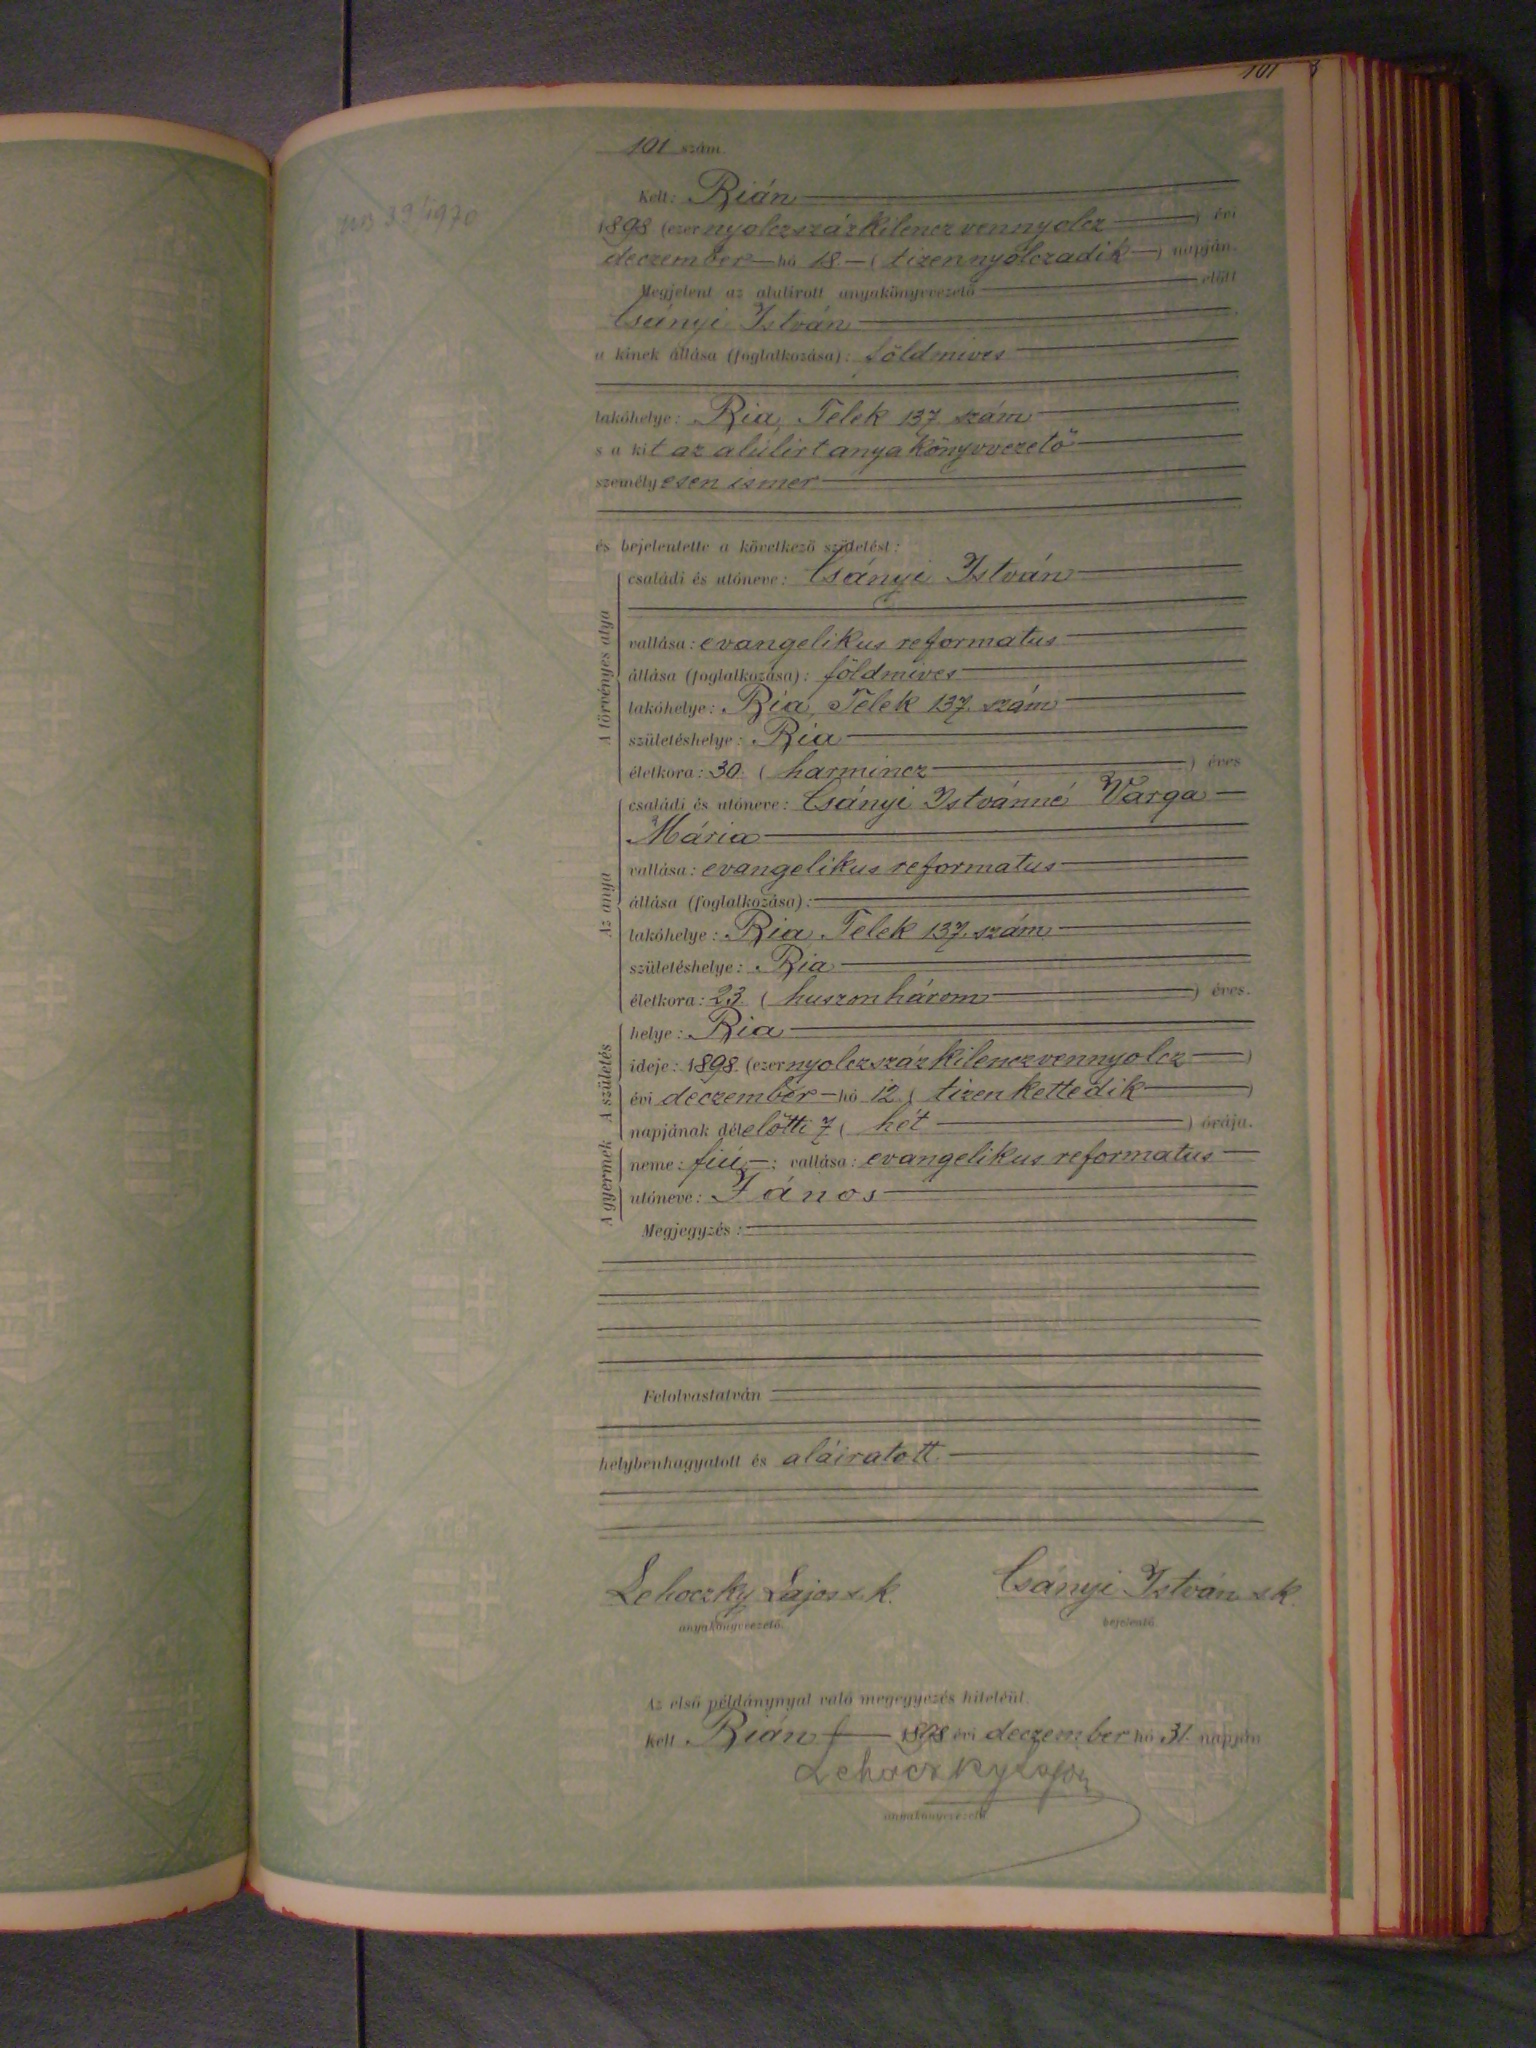 101
101 szám.
Kelt: Rián
1898 (ezernyolczszázkilenczvennyolcz) évi
deczember hó 18 (tizennyolczadik) napján.
Megjelent az alulirott anyakönyvvezető előtt
Csányi István
a kinek állása (foglalkozása): földmives
lakóhelye: Ria, Telek 137. szám
s a kit az alulirt anyakönyvvezető
személyesen ismer
és bejelentette a következő születést:
A törvényes atya
családi és utóneve: Csányi István
vallása: evangelikus reformatus
állása (foglalkozása): földmives
lakóhelye: Ria, Telek 137. szám
születéshelye: Ria
életkora: 30. (harmincz) éves
Az anya
családi és utóneve: Csányi Istvánné Varga
Mária
vallása: evangelikus reformatus
állása (foglalkozása):
lakóhelye: Ria, Telek 137. szám
születéshelye: Ria
életkora: 23. (huszonhárom) éves.
A születés
helye: Ria
ideje: 1898. (ezernyolczszázkilenczvennyolcz)
évi deczember hó 12 (tizenkettedik)
napjának délelőtti 7 (hét) órája.
A gyermek
neme: fiú; vallása: evangelikus reformatus
utóneve: János
Megjegyzés:
Felolvastatván
helybenhagyatott és aláiratott
Lehoczky Lajos s. k. Csányi István s k.
anyakönyvvezető. bejelentő.
Az első példánynyal való megegyezés hiteléül.
Kelt Rián 1898 évi deczember hó 31. napján
Lehoczky Lajos
anyakönyvvezető